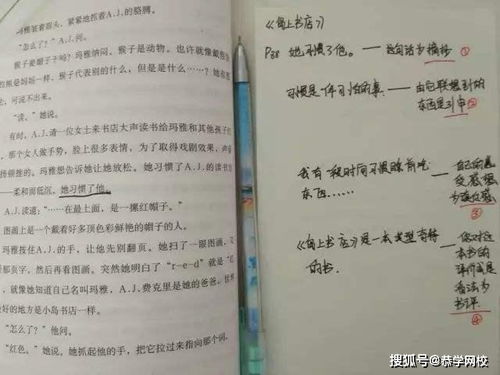 玛雅皱着眉头，紧紧地捏着A.J.的胳膊。
“怎么了？”A.J.问。
猴子是动物。也许就像
”她说。
有时，A.J.请一位女士来书店大声读书给玛雅和其他孩子们
，那个女人做手势，脸上很多表情，为了取得戏剧效果，声
玛雅想告诉她让她放松。她习惯了A.J.的读书方
柔和而低沉。她习惯了他。
A.J.读道：“……在最上面，是一摞红帽子。”
图画上是一个戴着好多顶色彩鲜艳的帽子的人。
玛雅按住A.J.的手，让他先别翻页。她扫了一眼图画，又
那页字，然后再看图画。突然她明白了“r-e-d”就是“红
，就像她知道自己名叫玛雅，A.J.费克里是她的爸爸，世
最好的地方是小岛书店一样。
“怎么了？”他问。
“红色。”她说，她抓起他的手，把它拉过来指向那个词。
《岛上书店》
P88 她习惯了他。——这句话步摘抄 ①
习惯是一件可怕的事——由它联想到的
东西是引申 ②
我有一段时间习惯睡前吃
东西……
——自己的感
受感想
步谈反感
③
《岛上书店》是一本类型奇特
的书.
——你对这
本书的
看法步
书评
④
搜狐号@恭学网校